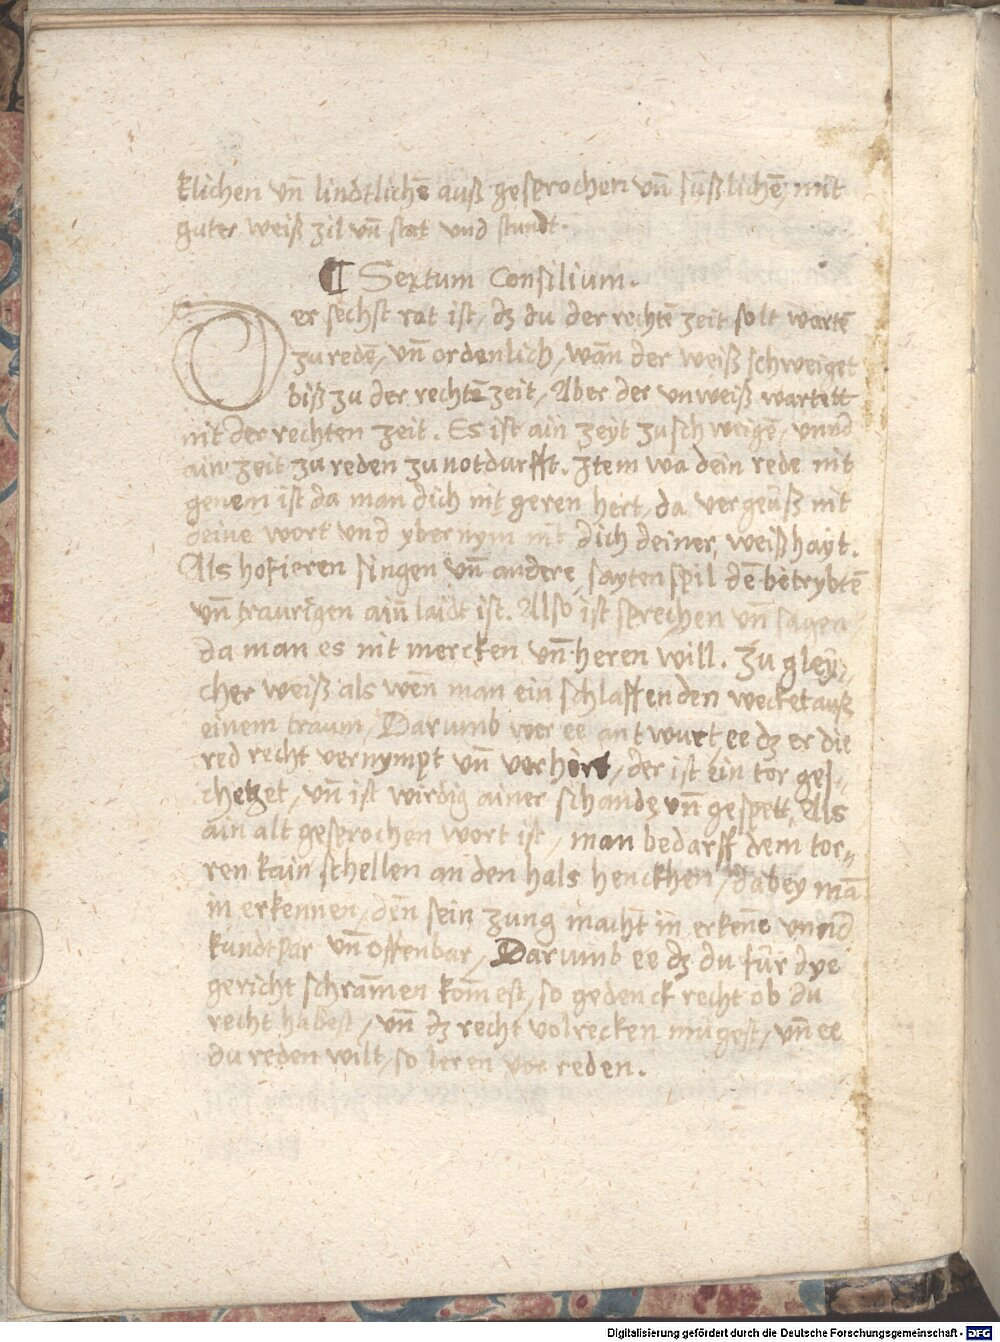 klichen vn̄ lindtlichē auß gesprochen vn̄ sußlichē, mit
guter weiß zil vn̄ stat vnd stundt.
¶ Sextum Consilium.
Der sechst rat ist, dz du der rechtē zeit solt wartē
zu redē, vn̄ ordenlich, wan̄ der weiß schweiget
biß zu der rechtē zeit, Aber der vnweiß wartett
nit der rechten zeit. Es ist ain zeyt zu schweigē, vnnd
ain zeit zu reden zu notdurfft. Item wa dein rede nit
genem ist da man dich nit geren hert, da vergeuß nit
deine wort vnd ybernym nit dich deiner weißhayt.
Als hofieren singen vn̄ andere saytenspil dē betrybtē
vn̄ traurigen ain̄ laidt ist. Also ist sprechen vn̄ sagen
da man es nit mercken vn̄ heren will. Zu gley-
cher weiß als wen̄ man ein̄ schlaffenden wecket auß
einem traum, Darumb wer ee antwurt, ee dz er die
red recht vernympt vn̄ verhört, der ist ein tor ges-
chetzet, vn̄ ist wirdig ainer schande vn̄ gespett, Als
ain alt gesprochen wort ist, man bedarff dem tor-
ren kain schellen an den hals henckhen, dabey mā
in erkennen, den̄ sein zung macht in erken̄e vnnd
kundtpar vn̄ offenbar, Darumb ee dz du für dye
gericht schram̄en kom̄est, so gedenck recht ob du
recht habest, vn̄ dz recht volrecken mügest, vn̄ ee
du reden wilt, so leren vor reden.
Digitalisierung gefördert durch die Deutsche Forschungsgemeinschaft - DFG